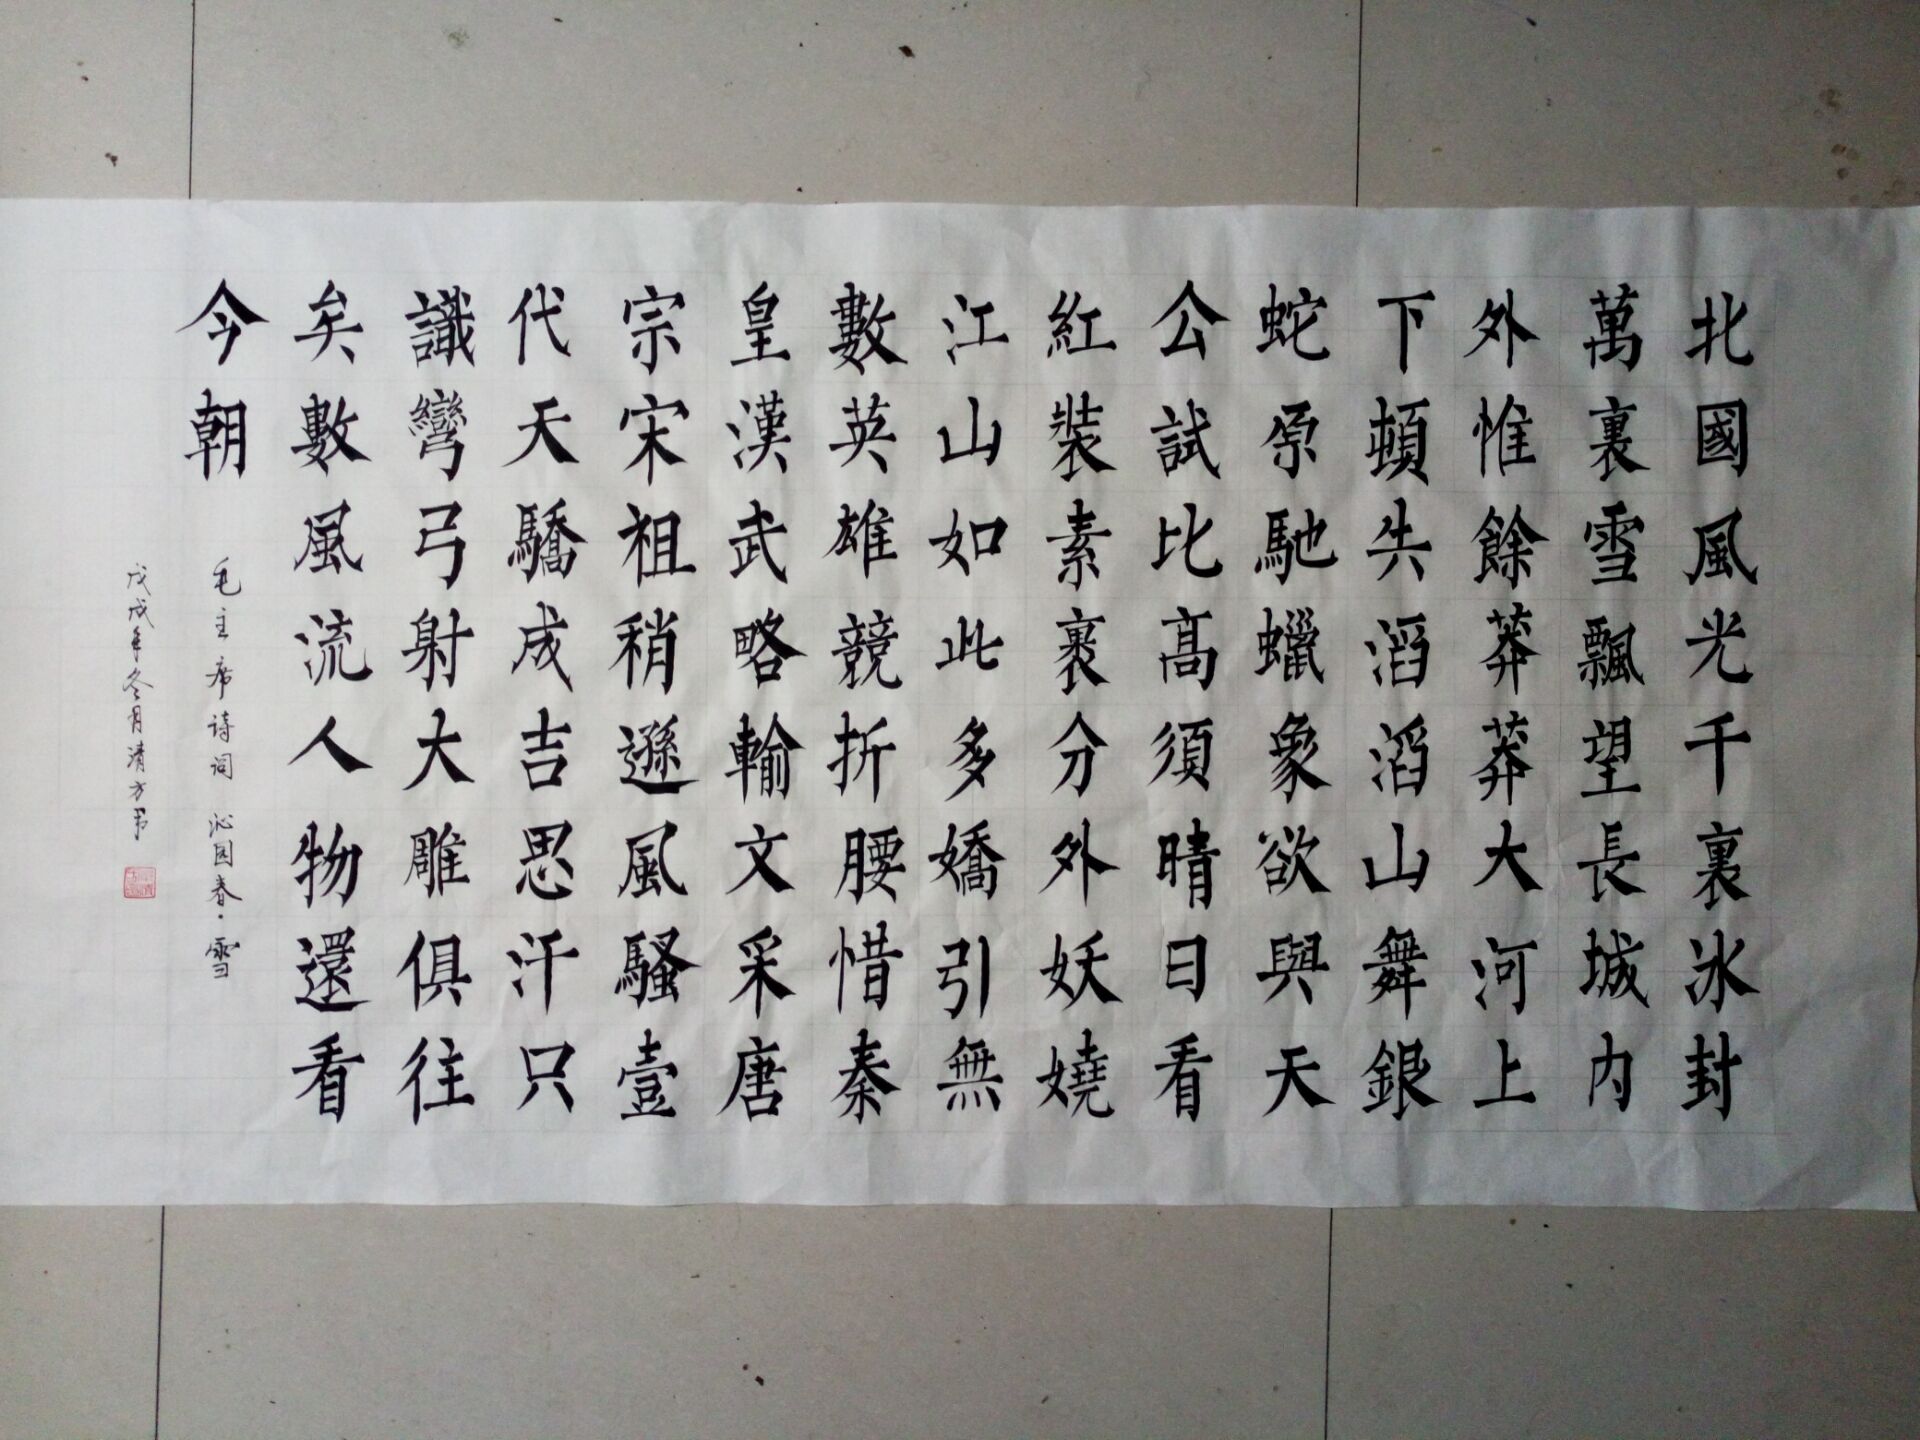 北國風光千裏冰封
萬裏雪飄望長城内
外惟餘莽莽大河上
下頓失滔滔山舞銀
蛇原馳蠟象欲與天
公試比高須晴日看
紅裝素裹分外妖嬈
江山如此多嬌引無
數英雄競折腰惜秦
皇漢武略輸文采唐
宗宋祖稍遜風騷壹
代天驕成吉思汗只
識彎弓射大雕俱往
矣數風流人物還看
今朝
毛主席诗词 沁园春·雪
戊戌年冬月清方书